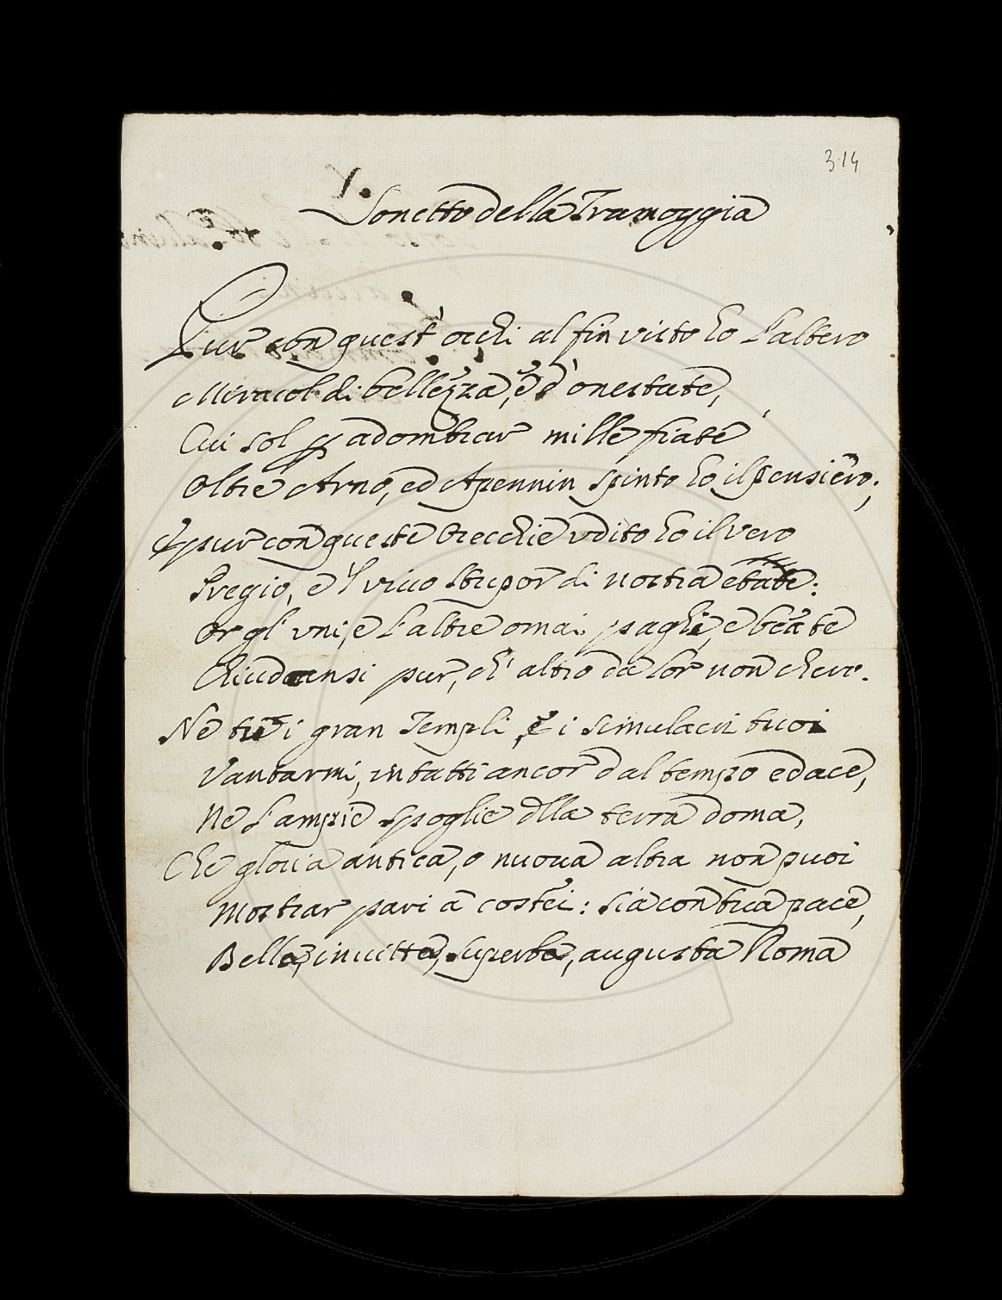 314
Sonetto della Tramoggia
Pur con quest' occhi al fin visto ho l'altero
Miracol di bellezza, e d' onestate,
Cui sol p adombrar mille fiate
Oltre Arno, ed Apennin spinto ho il pensiero;
E pur con queste orecchie udito ho il vero
Pregio, e 'l vivo stupor di nostra etate:
Or gl' uni, e l'altre omai paghi, e beate
Chiudansi pur, ch' altro da lor non chero.
Ne tu i gran Templi, e i simulacri tuoi
Vantarmi, intatti ancor dal tempo edace,
Ne l'ampie spoglie dlla terra doma,
Che gloria antica, o nuova altra non puoi
Mostrar pari a costei: sia con tua pace,
Bella, invitta, superba, augusta Roma